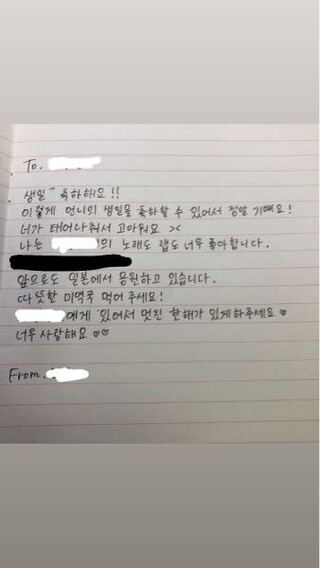 To.
생일 축하해요!!
이렇게 언니의 생일을 축하할 수 있어서 정말 기뻐요!
너가 태어나줘서 고아워요 ><
나는 의 노래도 랩도 너무 좋아합니다.
앞으로도 일본에서 응원하고 있습니다.
따뜻한 미역국 먹어 주세요!
에게 있어서 멋진 한해가 있게하주세요♡
너무 사랑해요 ♡♡
From.